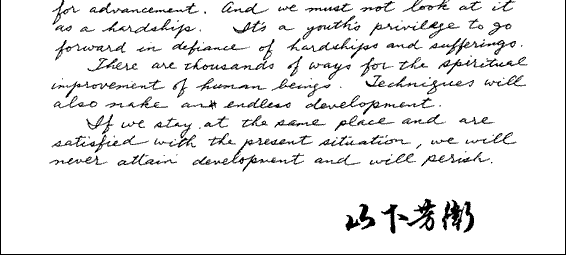 for advancement. And we must not look at it
as a hardship. It's a youth's privilege to go
forward in defiance of hardships and sufferings.
There are thousands of ways for the spiritual
improvement of human beings. Techniques will
also make an endless development.
If we stay at the same place and are
satisfied with the present situation, we will
never attain development and will perish.
山下芳衛